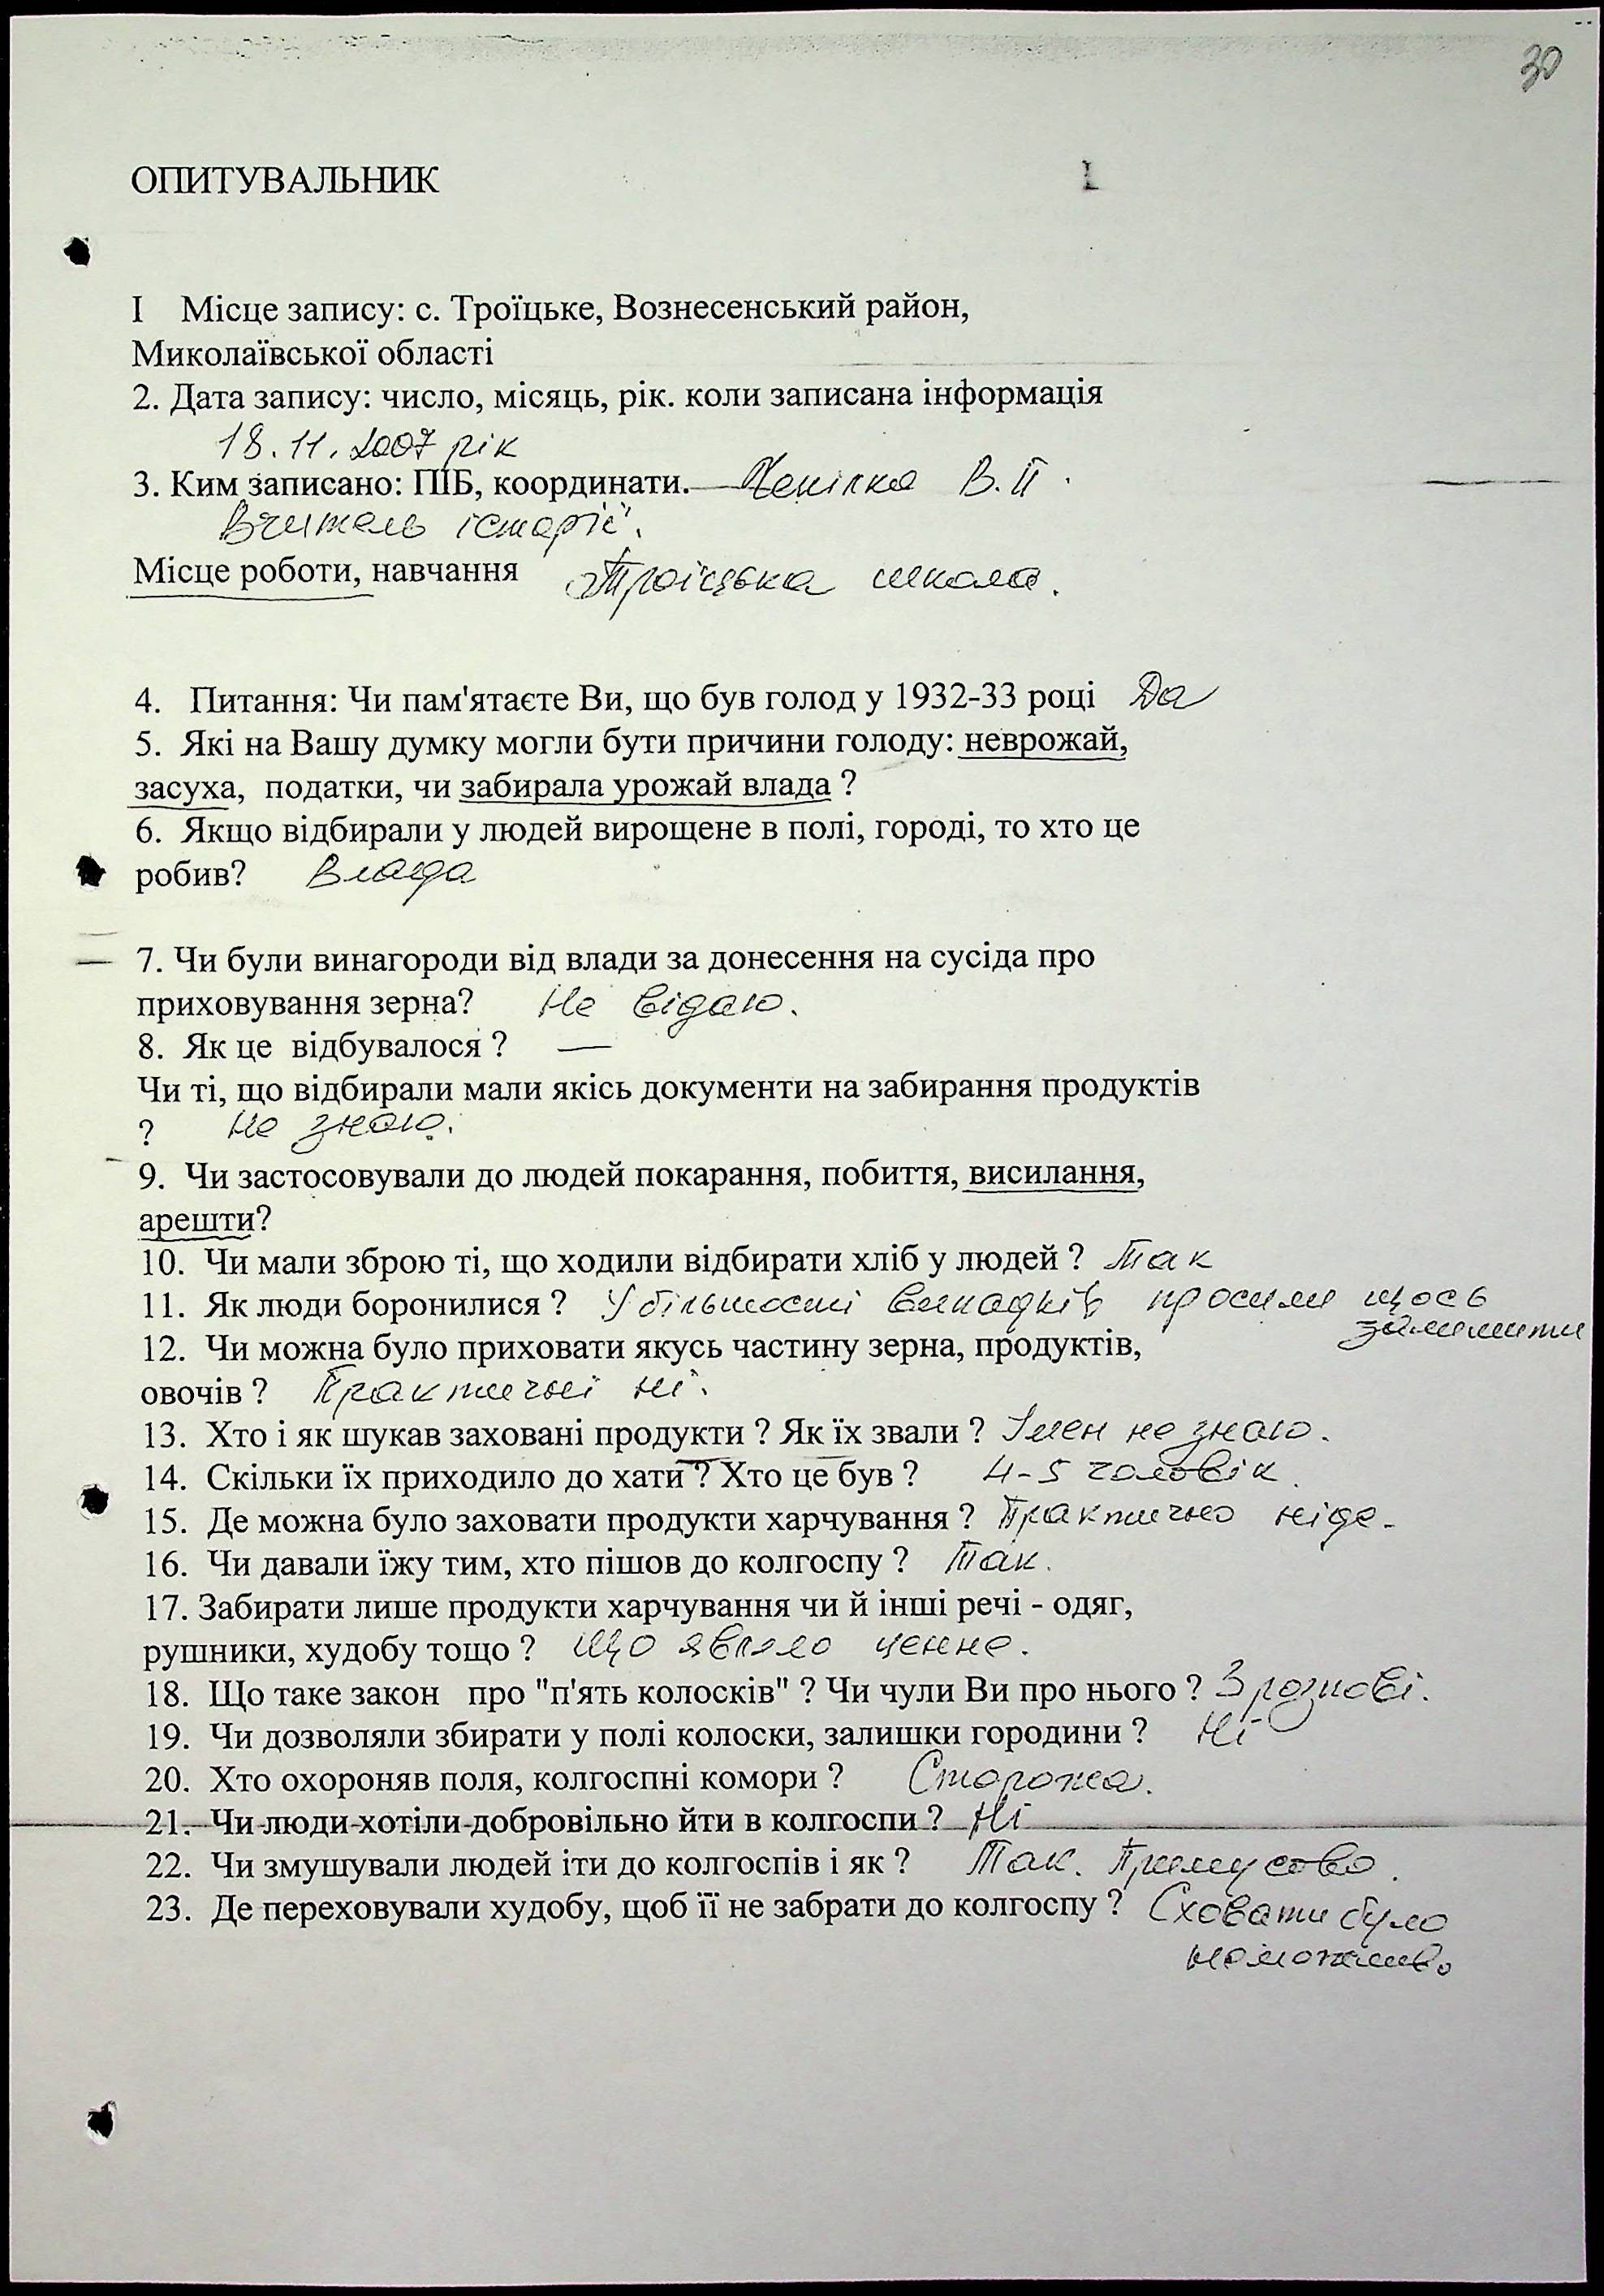 30
ОПИТУВАЛЬНИК
І Місце запису: с. Троїцьке, Вознесенський район,
Миколаївської області
2. Дата запису: число, місяць, рік. коли записана інформація
18.11.2007 рік
3. Ким записано: ПІБ, координати. В.П.
Вчитель історії.
Місце роботи, навчання Троїцька школа.
4. Питання: Чи пам'ятаєте Ви, що був голод у 1932-33 році Да
5. Які на Вашу думку могли бути причини голоду: неврожай,
засуха, податки, чи забирала урожай влада ?
6. Якщо відбирали у людей вирощене в полі, городі, то хто це
робив? Влада
7. Чи були винагороди від влади за донесення на сусіда про
приховування зерна? Не відаю.
8. Як це відбувалося ? —
Чи ті, що відбирали мали якісь документи на забирання продуктів
? Не знаю.
9. Чи застосовували до людей покарання, побиття, висилання,
арешти?
10. Чи мали зброю ті, що ходили відбирати хліб у людей ? Так
11. Як люди боронилися ? У більшості випадків просили щось
залишити
12. Чи можна було приховати якусь частину зерна, продуктів,
овочів ? Практичні ні.
13. Хто і як шукав заховані продукти ? Як їх звали ? Імен не знаю.
14. Скільки їх приходило до хати ? Хто це був ? 4-5 чоловік.
15. Де можна було заховати продукти харчування ? Практично ніде.
16. Чи давали їжу тим, хто пішов до колгоспу ? Так.
17. Забирати лише продукти харчування чи й інші речі - одяг,
рушники, худобу тощо ? Що являло ценне.
18. Що таке закон про "п'ять колосків" ? Чи чули Ви про нього ? З розпові.
19. Чи дозволяли збирати у полі колоски, залишки городини ? Ні
20. Хто охороняв поля, колгоспні комори ? Сторожа.
21. Чи люди хотіли добровільно йти в колгоспи ? Ні
22. Чи змушували людей іти до колгоспів і як ? Так. Примусово.
23. Де переховували худобу, щоб її не забрати до колгоспу ? Сховати було
неможливо